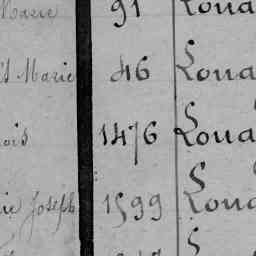 Marie 91 Loua
Marie 46 Loua
ois 1476 Loua
ie Joseph 1599 Loua